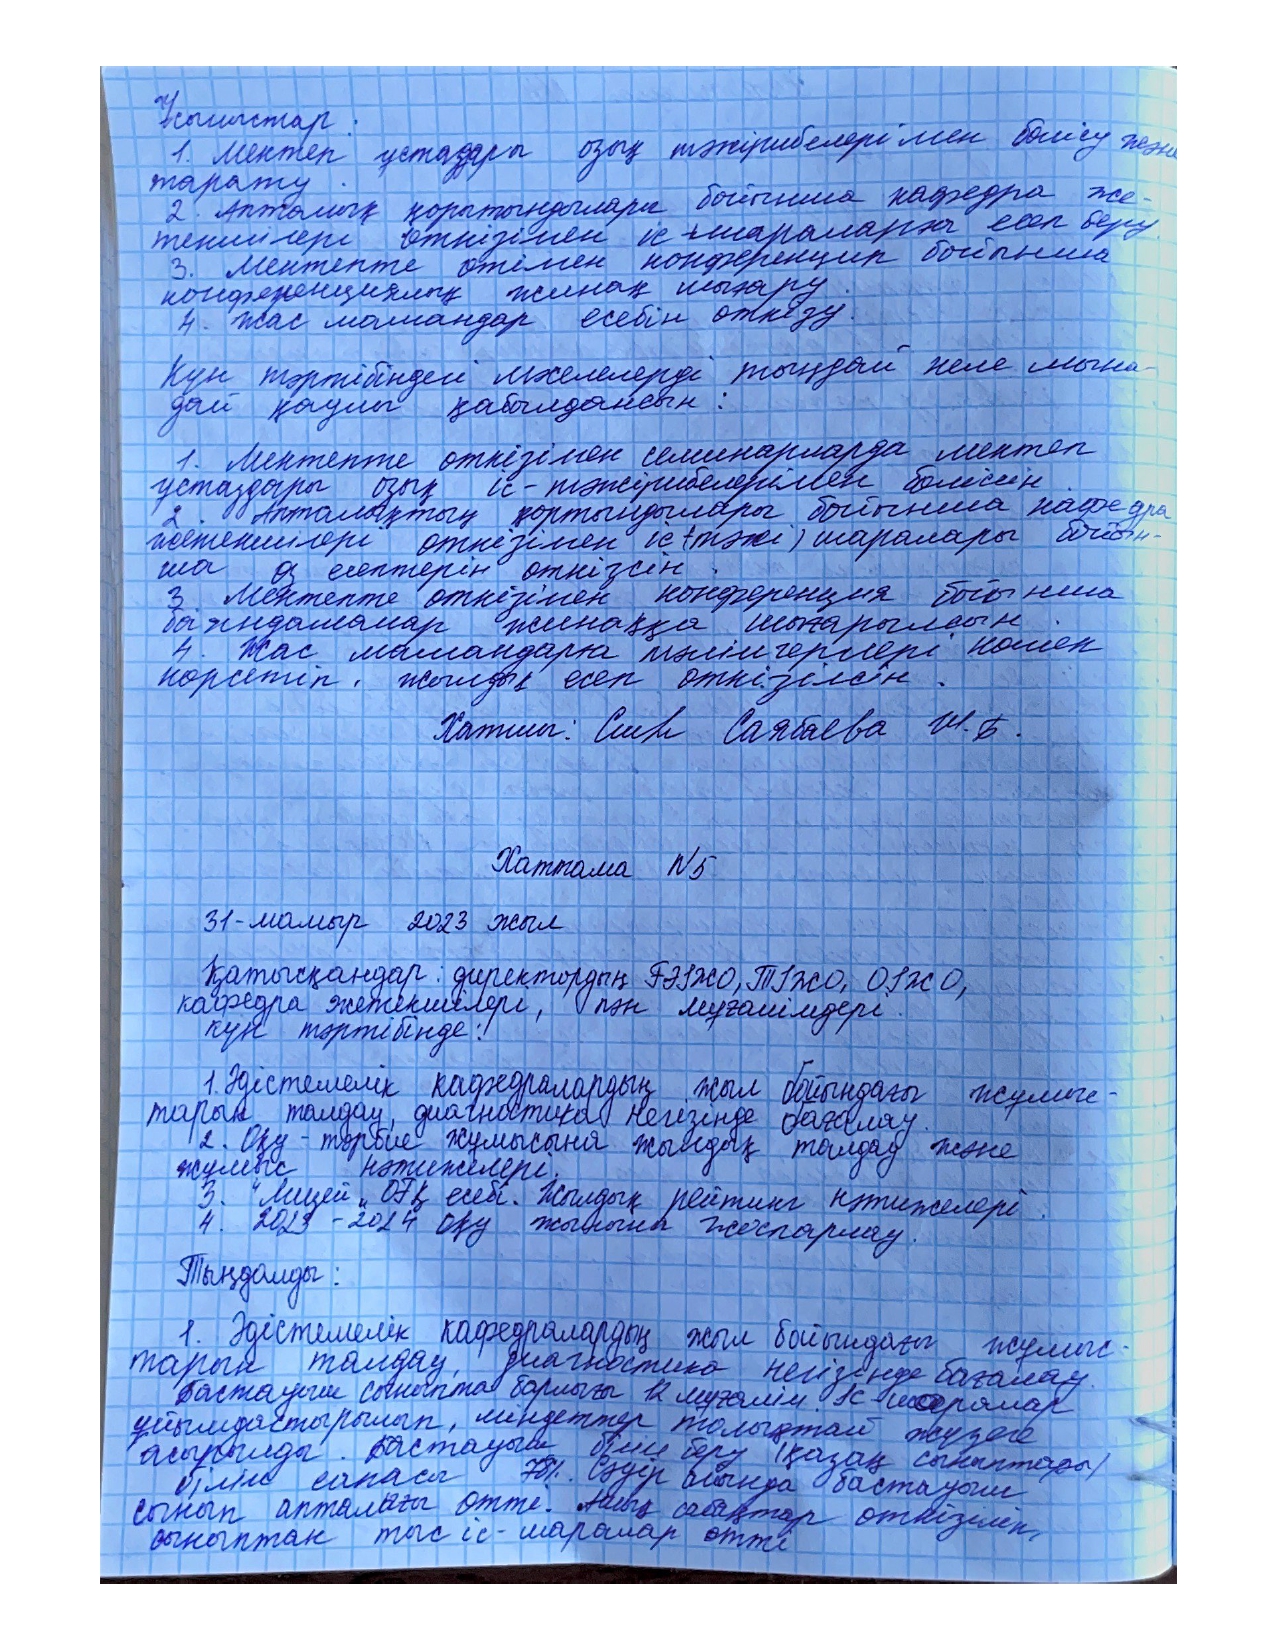 Ұсыныстар:
1. Мектеп ұстаздары озық тәжірибелерімен бөлісу және
тарату.
2. Апталық қорытындылары бойынша кафедра же-
текшілері өткізілген іс-шараларға есеп беру.
3. Мектепте өтілген конференция бойынша
конференциялық жинақ шығару.
4. Жас мамандар есебін өткізу.
Күн тәртібіндегі мәселелерді тыңдай келе мына-
дай қаулы қабылдансын:
1. Мектепте өткізілген семинарларда мектеп
ұстаздары озық іс-тәжірибелерімен бөліссін.
2. Апталықтың қортындылары бойынша кафедра
жетекшілері өткізілген іс (тәжі) шаралары бойын-
ша өз есептерін өткізсін.
3. Мектепте өткізілген конференция бойынша
баяндамалар жинаққа шығарылсын.
4. Жас мамандарға тәлімгерлері көмек
көрсетіп, жылдық есеп өткізілсін.
Хатшы: Саябаева Ш.Б.
Хаттама N5
31-мамыр 2023 жыл
Қатысқандар: директордың ҒӘІЖО, ТІЖО, ОІЖО,
кафедра жетекшілері, пән мұғалімдері.
күн тәртібінде:
1. Әдістемелік кафедралардың жыл бойындағы жұмыс-
тарын талдау, диагностика негізінде бағалау.
2. Оқу-тәрбие жұмысына жылдық талдау және
жұмыс нәтижелері.
3. "Лицей" ОӘК есебі. Жылдық рейтинг нәтижелері.
4. 2023-2024 оқу жылына жоспарлау.
Тыңдалды:
1. Әдістемелік кафедралардың жыл бойындағы жұмыс-
тарын талдау, диагностика негізінде бағалау.
Бастауыш сыныпта барлығы 12 мұғалім. Іс шаралар
ұйымдастырылып, міндеттер толықтай жүзеге
асырылды. Бастауыш білім беру (қазақ сыныптары)
білім сапасы 78%. Сәуір айында бастауыш
сынып апталығы өтті. Ашық сабақтар өткізіліп,
сыныптан тыс іс-шаралар өтті